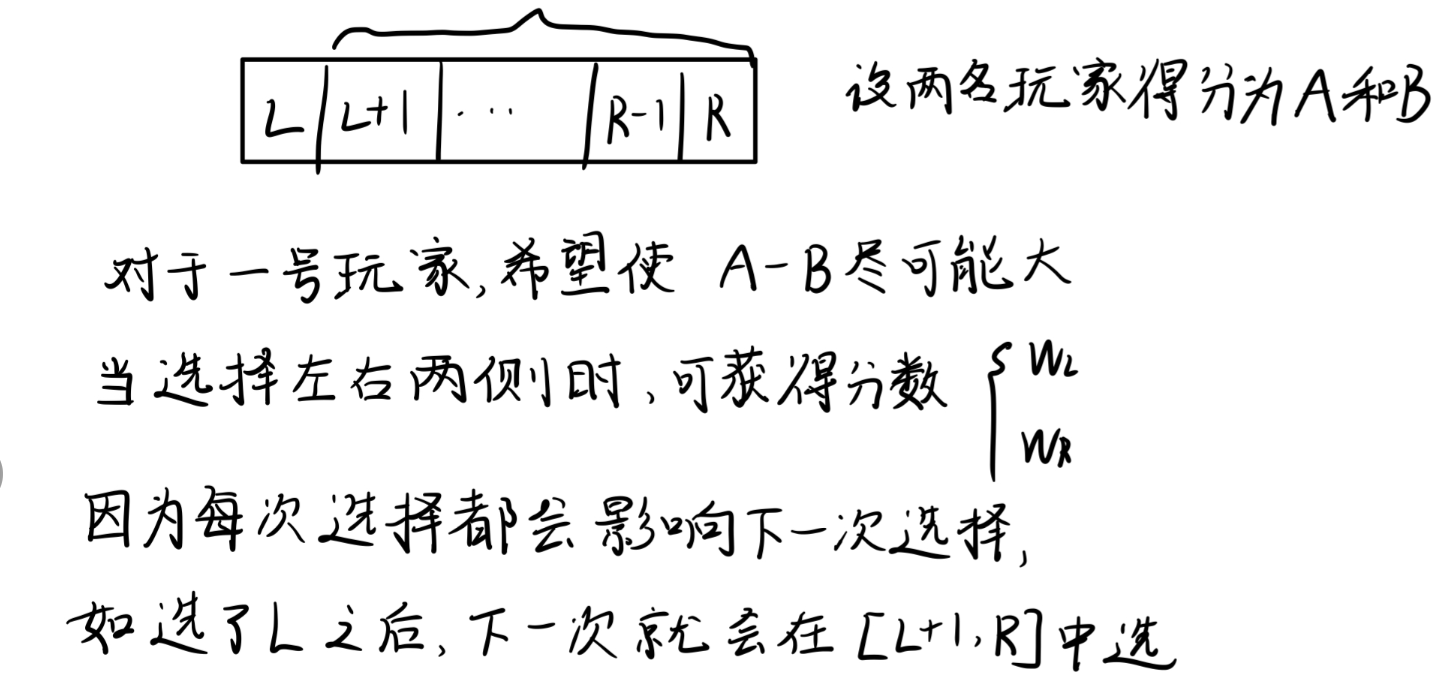 L L+1 ... R-1 R 设两各玩家得分为A和B
对于一号玩家,希望使 A-B尽可能大
当选择左右两侧时,可获得分数 { WL
WR
因为每次选择都会影响下一次选择,
如选了L之后,下一次就会在[L+1,R]中选